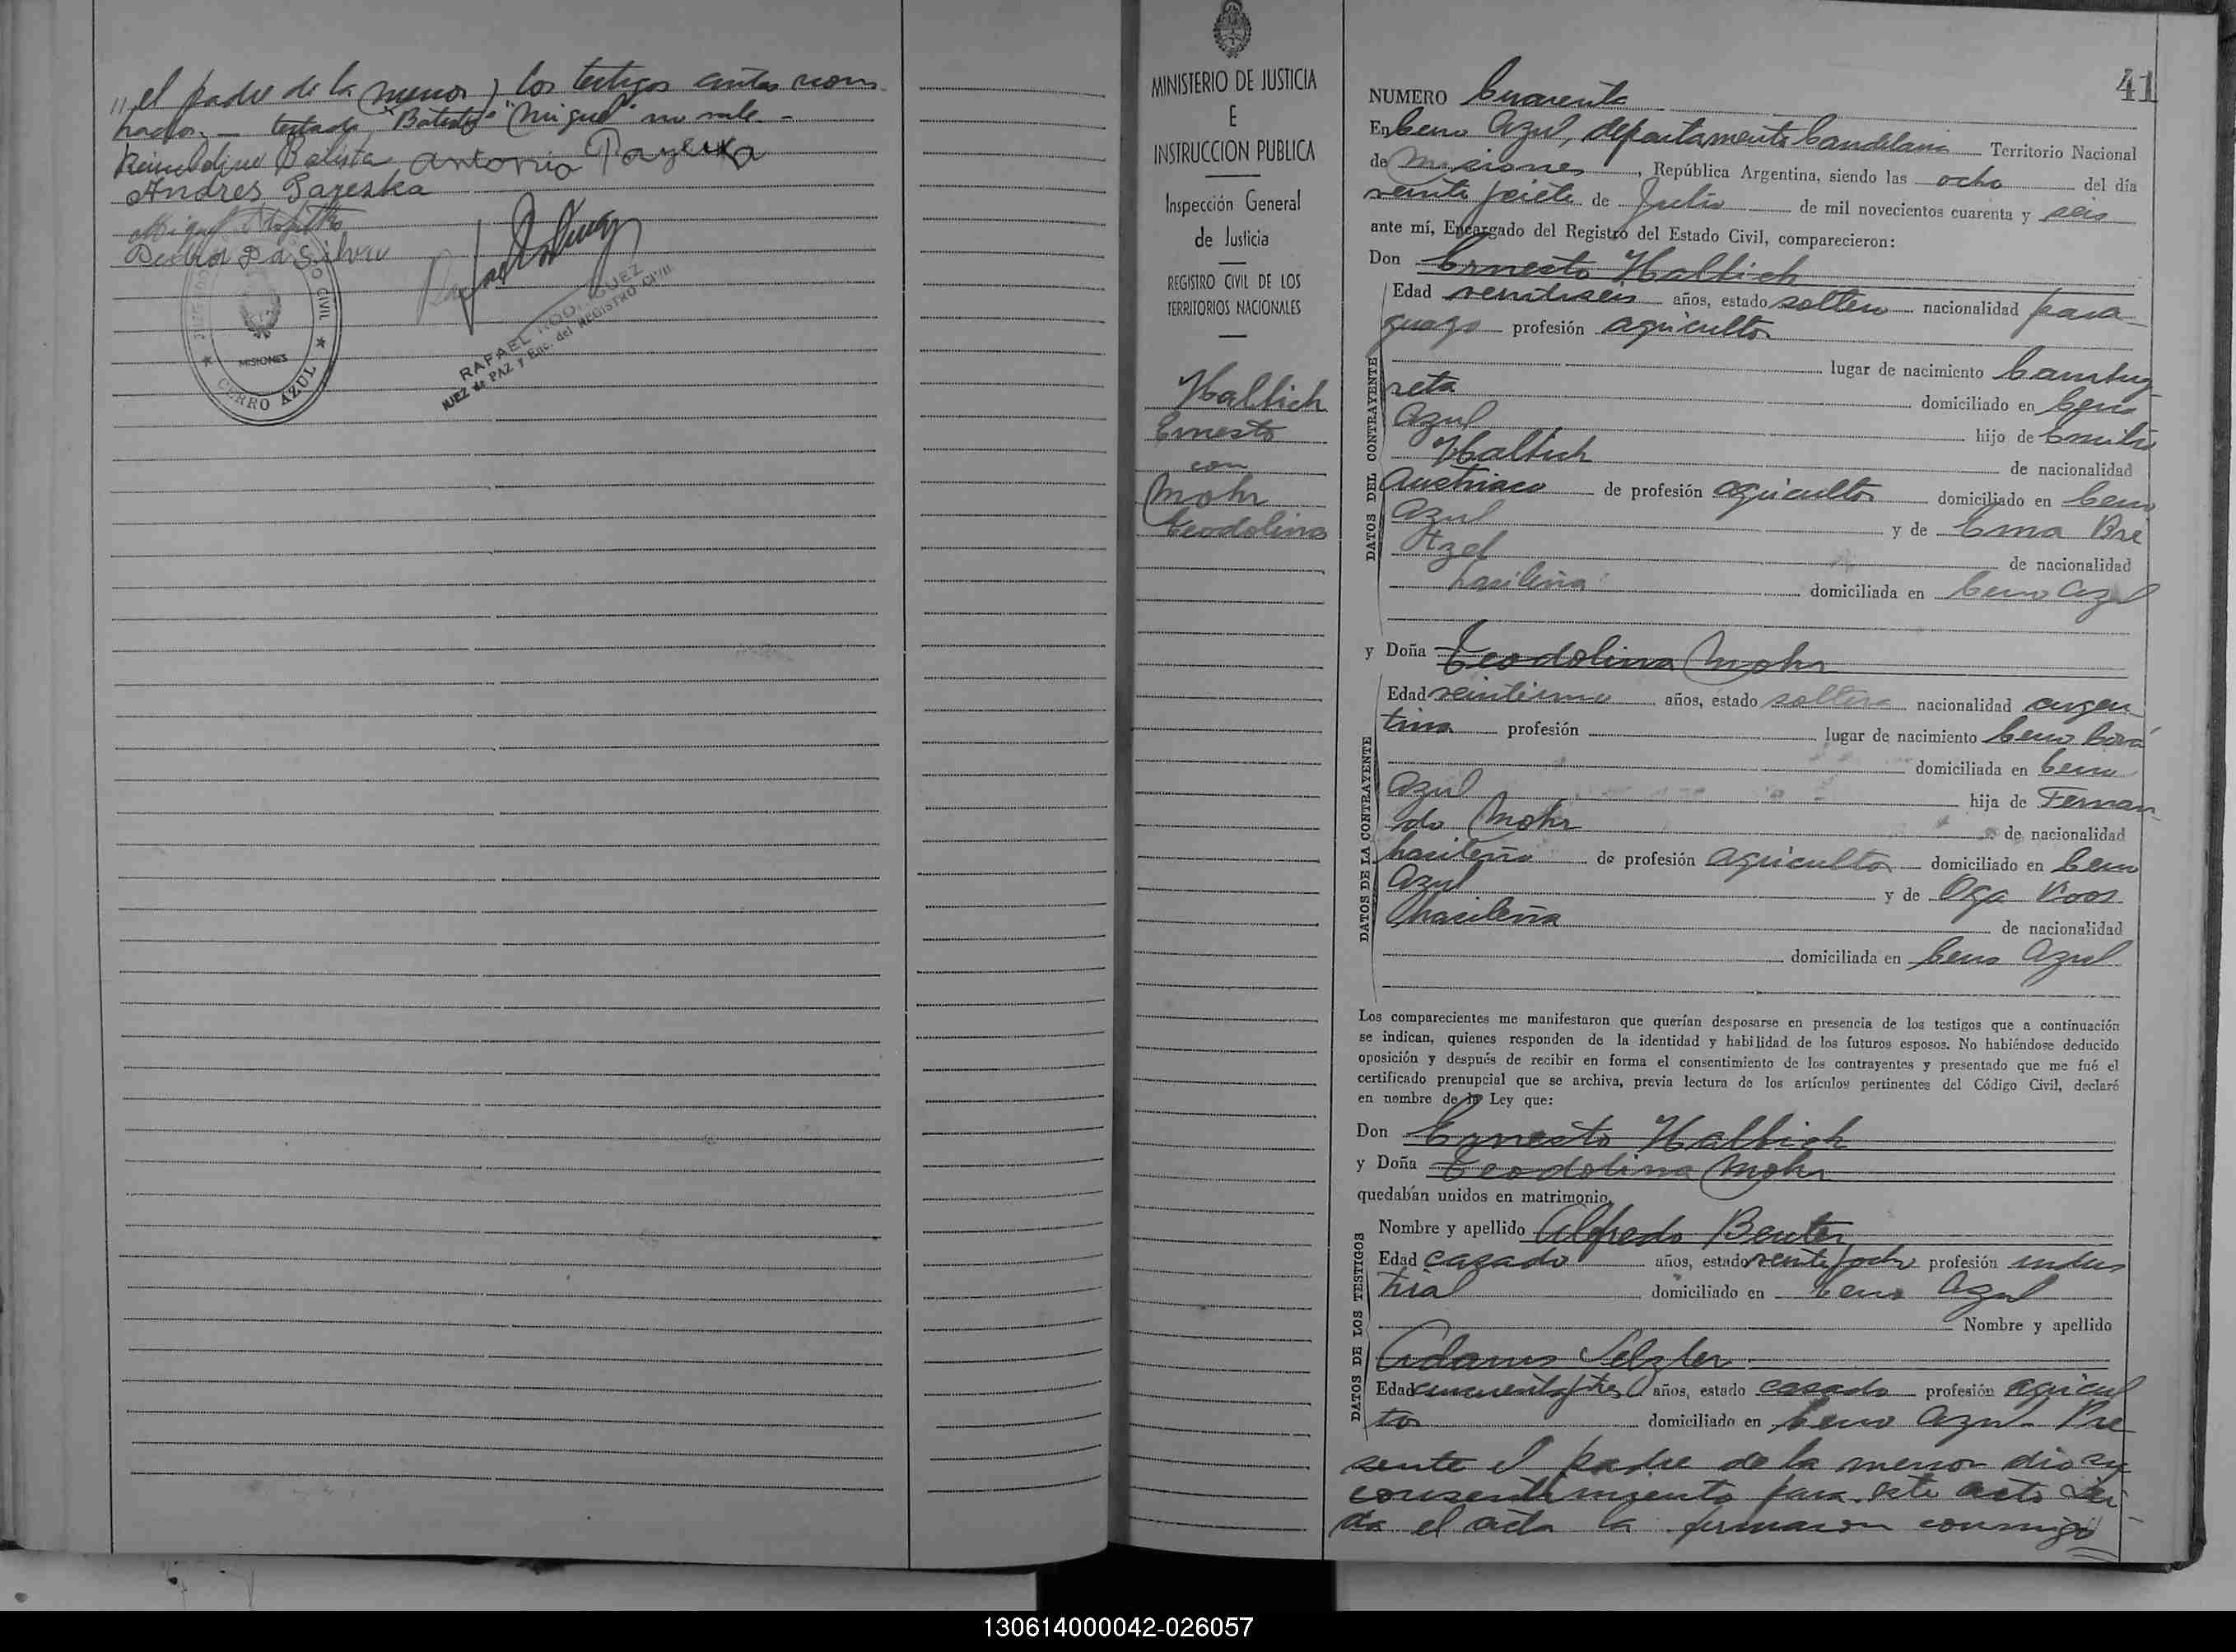 // el padre de la menor y los testigos antes nom
brados. — testado "Batista" "Miguel" no vale. -
Reinoldino Balista Antonio Payeska
Andres Payeska
Miguel
Pedro Da Silva
REGISTRO CIVIL
MISIONES
CERRO AZUL
RAFAEL RODRIGUEZ
JUEZ de PAZ y Enc. del REGISTRO CIVIL
MINISTERIO DE JUSTICIA
E
INSTRUCCION PUBLICA
Inspección General
de Justicia
REGISTRO CIVIL DE LOS
TERRITORIOS NACIONALES
Halbich
Ernesto
con
Mohr
Teodolina
41
NUMERO Cuarenta
En Cerro Azul, departamento Candelaria Territorio Nacional
de Misiones, República Argentina, siendo las ocho del día
veinte y siete de Julio de mil novecientos cuarenta y seis
ante mí, Encargado del Registro del Estado Civil, comparecieron:
Don Ernesto Halbich
DATOS DEL CONTRAYENTE
Edad veintiseis años, estado soltero nacionalidad para-
guayo profesión agricultor
lugar de nacimiento Cambuy
reta domiciliado en Cerro
Azul hijo de Emilio
Halbich de nacionalidad
Austriaco de profesión agricultor domiciliado en Cerro
Azul y de Ema Bre
tzel de nacionalidad
brasileña domiciliada en Cerro Azul
y Doña Teodolina Mohr
DATOS DE LA CONTRAYENTE
Edad veintiuno años, estado soltera nacionalidad argen
tina profesión lugar de nacimiento Cerro Corá
domiciliada en Cerro
Azul hija de Fernan
do Mohr de nacionalidad
brasileño de profesión agricultor domiciliado en Cerro
Azul y de Olga Voos
brasileña de nacionalidad
domiciliada en Cerro Azul
Los comparecientes me manifestaron que querían desposarse en presencia de los testigos que a continuación
se indican, quienes responden de la identidad y habilidad de los futuros esposos. No habiéndose deducido
oposición y después de recibir en forma el consentimiento de los contrayentes y presentado que me fué el
certificado prenupcial que se archiva, previa lectura de los artículos pertinentes del Código Civil, declaré
en nombre de la Ley que:
Don Ernesto Halbich
y Doña Teodolina Mohr
quedaban unidos en matrimonio.
DATOS DE LOS TESTIGOS
Nombre y apellido Alfredo Beuter
Edad casado años, estado veinte y ocho profesión indus
trial domiciliado en Cerro Azul
Nombre y apellido
Adams Selzler
Edad cincuenta y tres años, estado casado profesión agricul
tor domiciliado en Cerro Azul - Pre
sente el padre de la menor dio su
consentimiento para este acto Lei
da el acta la firmaron conmigo //
130614000042-026057